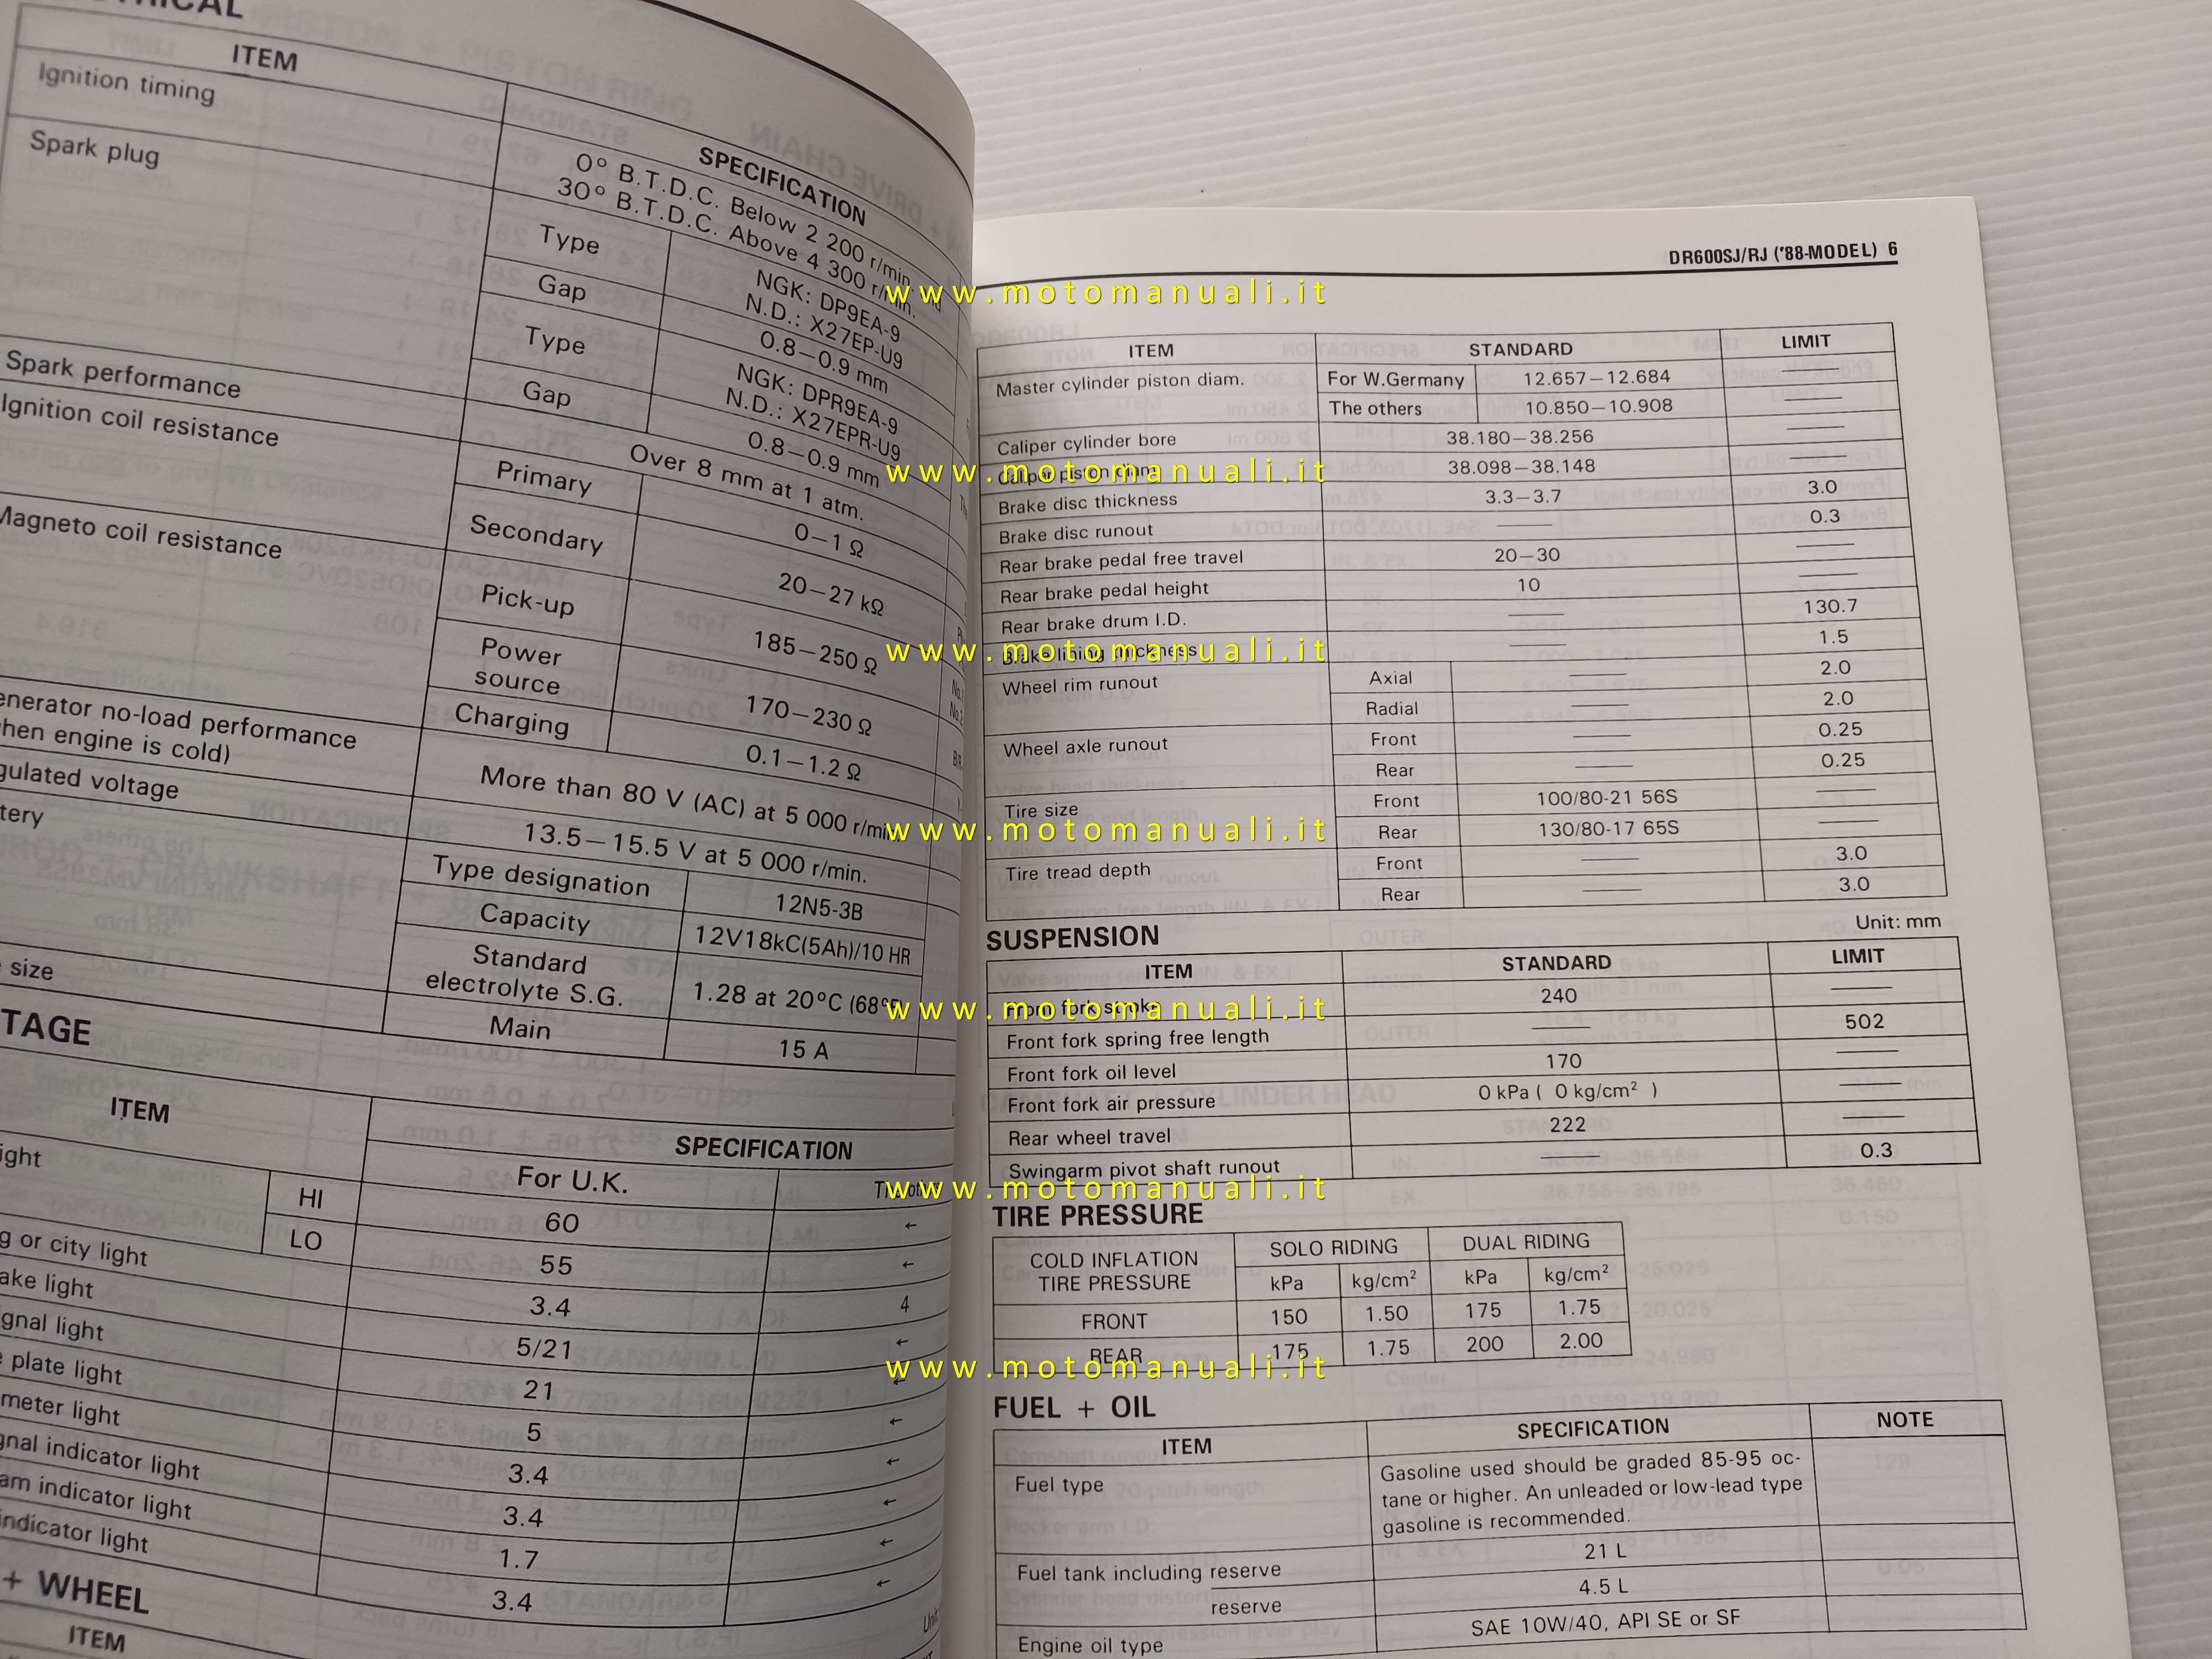 ITEM
SPECIFICATION
Ignition timing
0° B.T.D.C. Below 2 200 r/min.
30° B.T.D.C. Above 4 300 r/min.
Spark plug
Type
NGK: DP9EA-9
N.D.: X27EP-U9
Gap
0.8–0.9 mm
Type
NGK: DPR9EA-9
N.D.: X27EPR-U9
Gap
0.8–0.9 mm
Spark performance
Over 8 mm at 1 atm.
Ignition coil resistance
Primary
0–1 Ω
Secondary
20–27 kΩ
Magneto coil resistance
Pick-up
185–250 Ω
Power
source
170–230 Ω
Charging
0.1–1.2 Ω
enerator no-load performance
hen engine is cold)
More than 80 V (AC) at 5 000 r/min.
gulated voltage
13.5–15.5 V at 5 000 r/min.
tery
Type designation
12N5-3B
Capacity
12V18kC(5Ah)/10 HR
Standard
electrolyte S.G.
1.28 at 20°C (68°F)
size
Main
15 A
TAGE
ITEM
SPECIFICATION
For U.K.
ight
HI
60
←
LO
55
←
g or city light
3.4
4
ake light
5/21
←
gnal light
21
←
plate light
5
←
meter light
3.4
←
gnal indicator light
3.4
←
am indicator light
1.7
←
indicator light
3.4
←
+ WHEEL
ITEM
DR600SJ/RJ ('88-MODEL) 6
www.motomanuali.it
ITEM STANDARD LIMIT
Master cylinder piston diam. For W.Germany 12.657–12.684
The others 10.850–10.908
Caliper cylinder bore 38.180–38.256
Caliper piston diam. 38.098–38.148
www.motomanuali.it
Brake disc thickness 3.3–3.7 3.0
Brake disc runout 0.3
Rear brake pedal free travel 20–30
Rear brake pedal height 10
Rear brake drum I.D. 130.7
Brake lining thickness 1.5
www.motomanuali.it
Wheel rim runout Axial 2.0
Radial 2.0
Wheel axle runout Front 0.25
Rear 0.25
Tire size Front 100/80-21 56S
Rear 130/80-17 65S
www.motomanuali.it
Tire tread depth Front 3.0
Rear 3.0
SUSPENSION Unit: mm
ITEM STANDARD LIMIT
Front fork stroke 240
www.motomanuali.it
Front fork spring free length 502
Front fork oil level 170
Front fork air pressure 0 kPa ( 0 kg/cm² )
Rear wheel travel 222
Swingarm pivot shaft runout 0.3
www.motomanuali.it
TIRE PRESSURE
COLD INFLATION
TIRE PRESSURE
SOLO RIDING DUAL RIDING
kPa kg/cm² kPa kg/cm²
FRONT 150 1.50 175 1.75
REAR 175 1.75 200 2.00
www.motomanuali.it
FUEL + OIL
ITEM SPECIFICATION NOTE
Fuel type
Gasoline used should be graded 85-95 oc-
tane or higher. An unleaded or low-lead type
gasoline is recommended.
Fuel tank including reserve 21 L
reserve 4.5 L
Engine oil type SAE 10W/40, API SE or SF